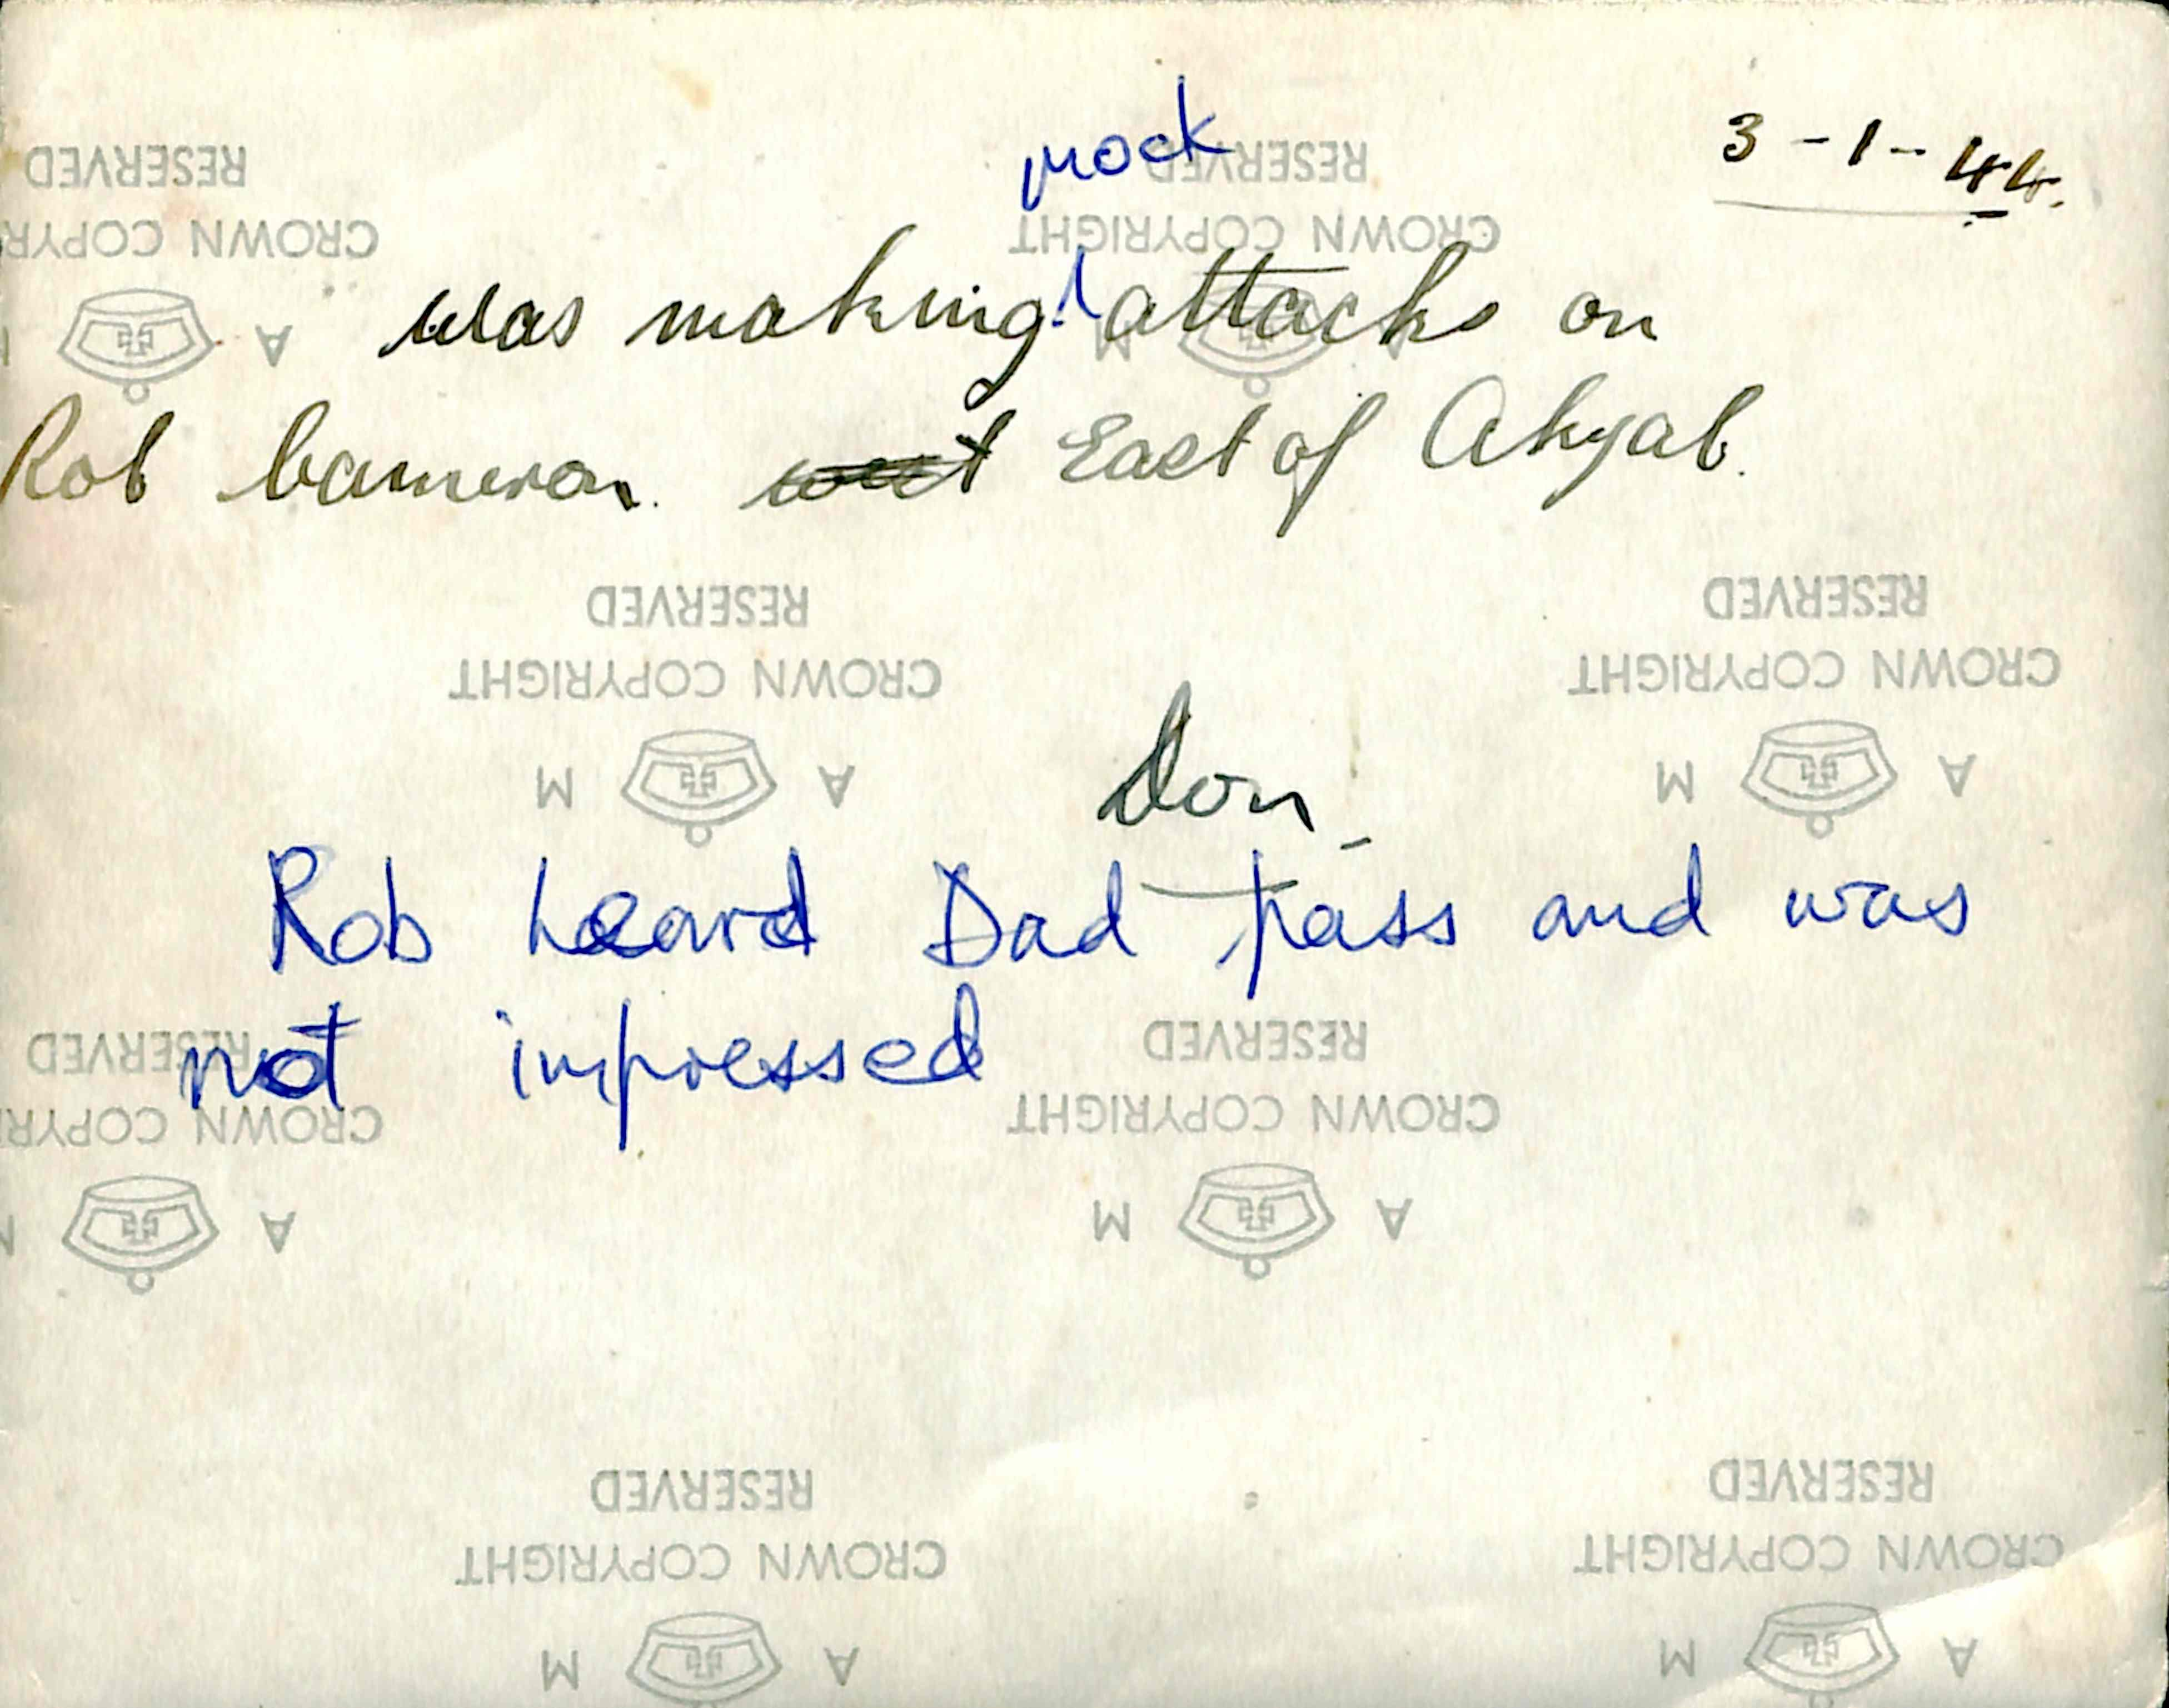 3-1-44.
mock
was making attacks on
Rob Cameron. west East of Akyab.
Don
Rob heard Dad pass and was
not impressed
RESERVED
CROWN COPYR
A
RESERVED
CROWN COPYRIGHT
A M
RESERVED
CROWN COPYRIGHT
A M
RESERVED
CROWN COPYRIGHT
A M
RESERVED
CROWN COPYRI
A M
RESERVED
CROWN COPYRIGHT
A M
RESERVED
CROWN COPYRIGHT
A M
RESERVED
CROWN COPYRIGHT
A M